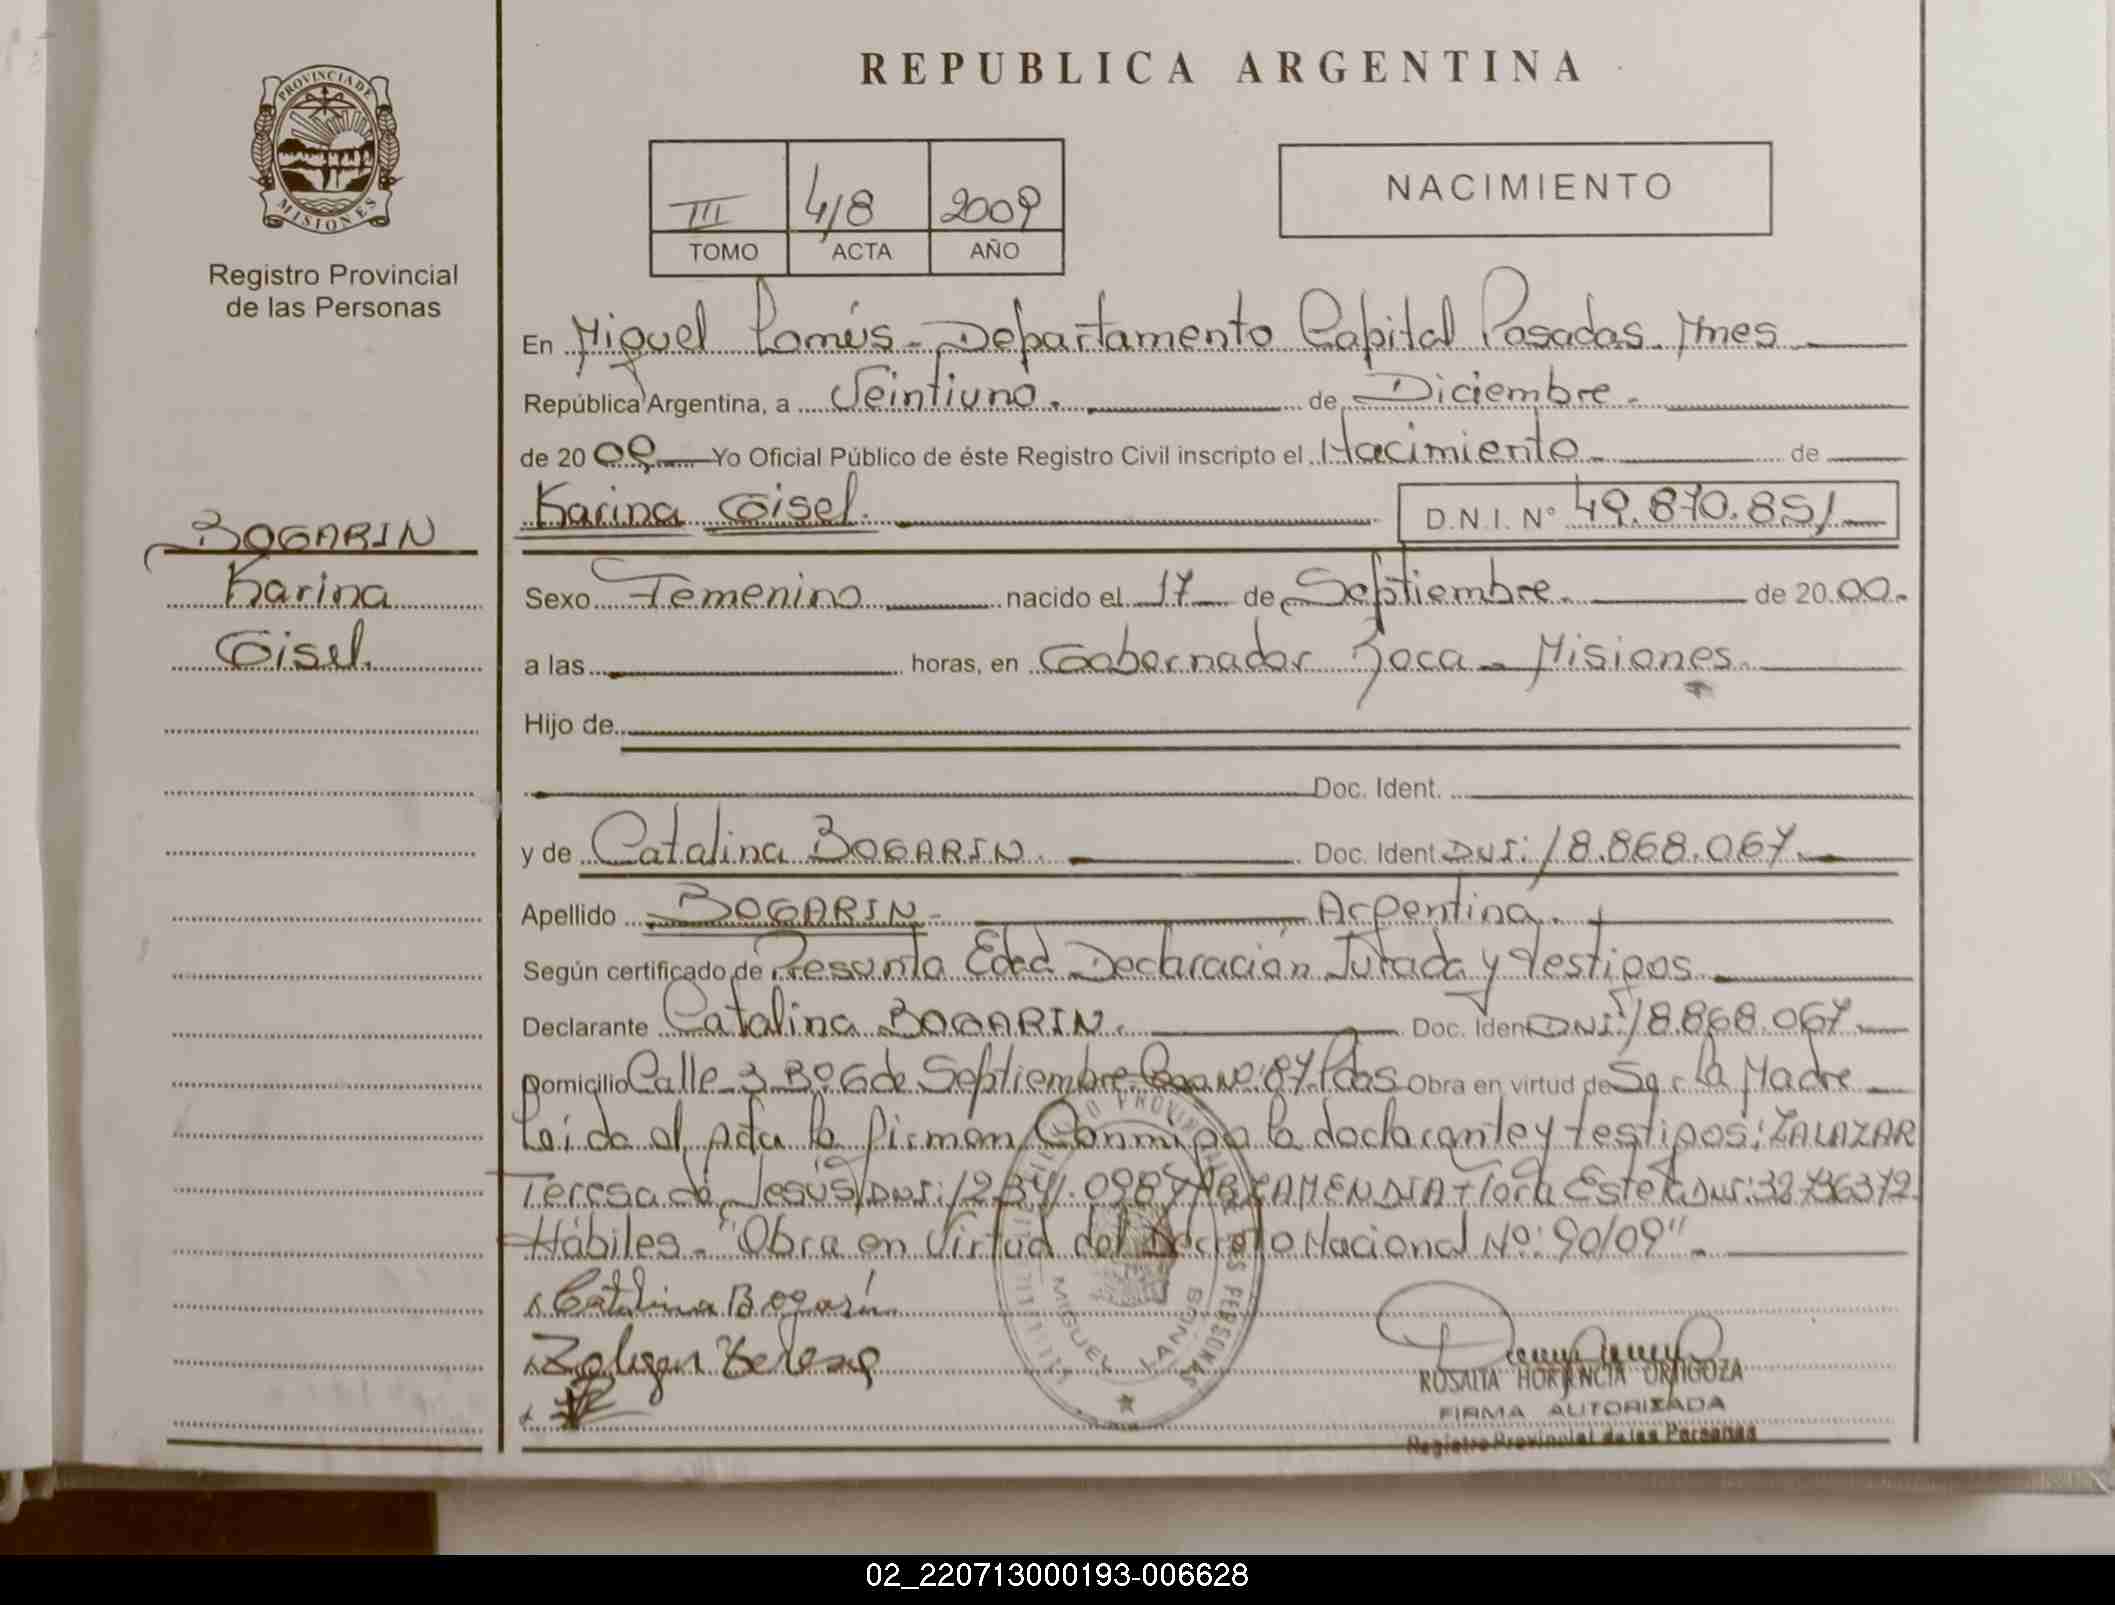 REPUBLICA ARGENTINA
PROVINCIA DE
MISIONES
Registro Provincial
de las Personas
III 418 2009
TOMO ACTA AÑO
NACIMIENTO
En Miguel Lanús - Departamento Capital Posadas Mnes
República Argentina, a Veintiuno. de Diciembre.
de 2009 Yo Oficial Público de éste Registro Civil inscripto el Nacimiento de
Karina Gisel. D.N.I. N° 49.870.851
BOGARIN
Karina
Gisel.
Sexo Femenino nacido el 17 de Septiembre. de 2000.
a las horas, en Gobernador Roca - Misiones.
Hijo de
Doc. Ident.
y de Catalina BOGARIN. Doc. Ident DNI: 18.868.067.
Apellido BOGARIN - Argentina.
Según certificado de Presunta Edad Declaración Jurada y Testigos
Declarante Catalina BOGARIN. Doc. Iden DNI: 18.868.067
Domicilio Calle 3 Bº 6 de Septiembre Casa Nº: 87 Pdas Obra en virtud de Ser la Madre
Leída el Acta la firman Conmigo la declarante y testigos: ZALAZAR
Teresa de Jesús DNI: Estela DNI: 32.736372.
Hábiles. "Obra en Virtud del Decreto Nacional Nº: 90/09".
Catalina Bogarín
Zalazar Teresa
MIGUEL LANUS
ROSALIA HORTENCIA ORTIGOZA
FIRMA AUTORIZADA
Registro Provincial de las Personas
02_220713000193-006628